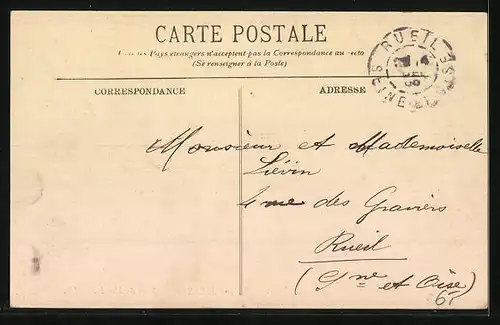 CARTE POSTALE
Pays étrangers n'acceptent pas la Correspondance au recto
(Se renseigner à la Poste)
CORRESPONDANCE
ADRESSE
RUEIL
SEINE ET OISE
Monsieur et Mademoiselle
Liévin
4 rue des Graviers
Rueil
(Sne et Oise)